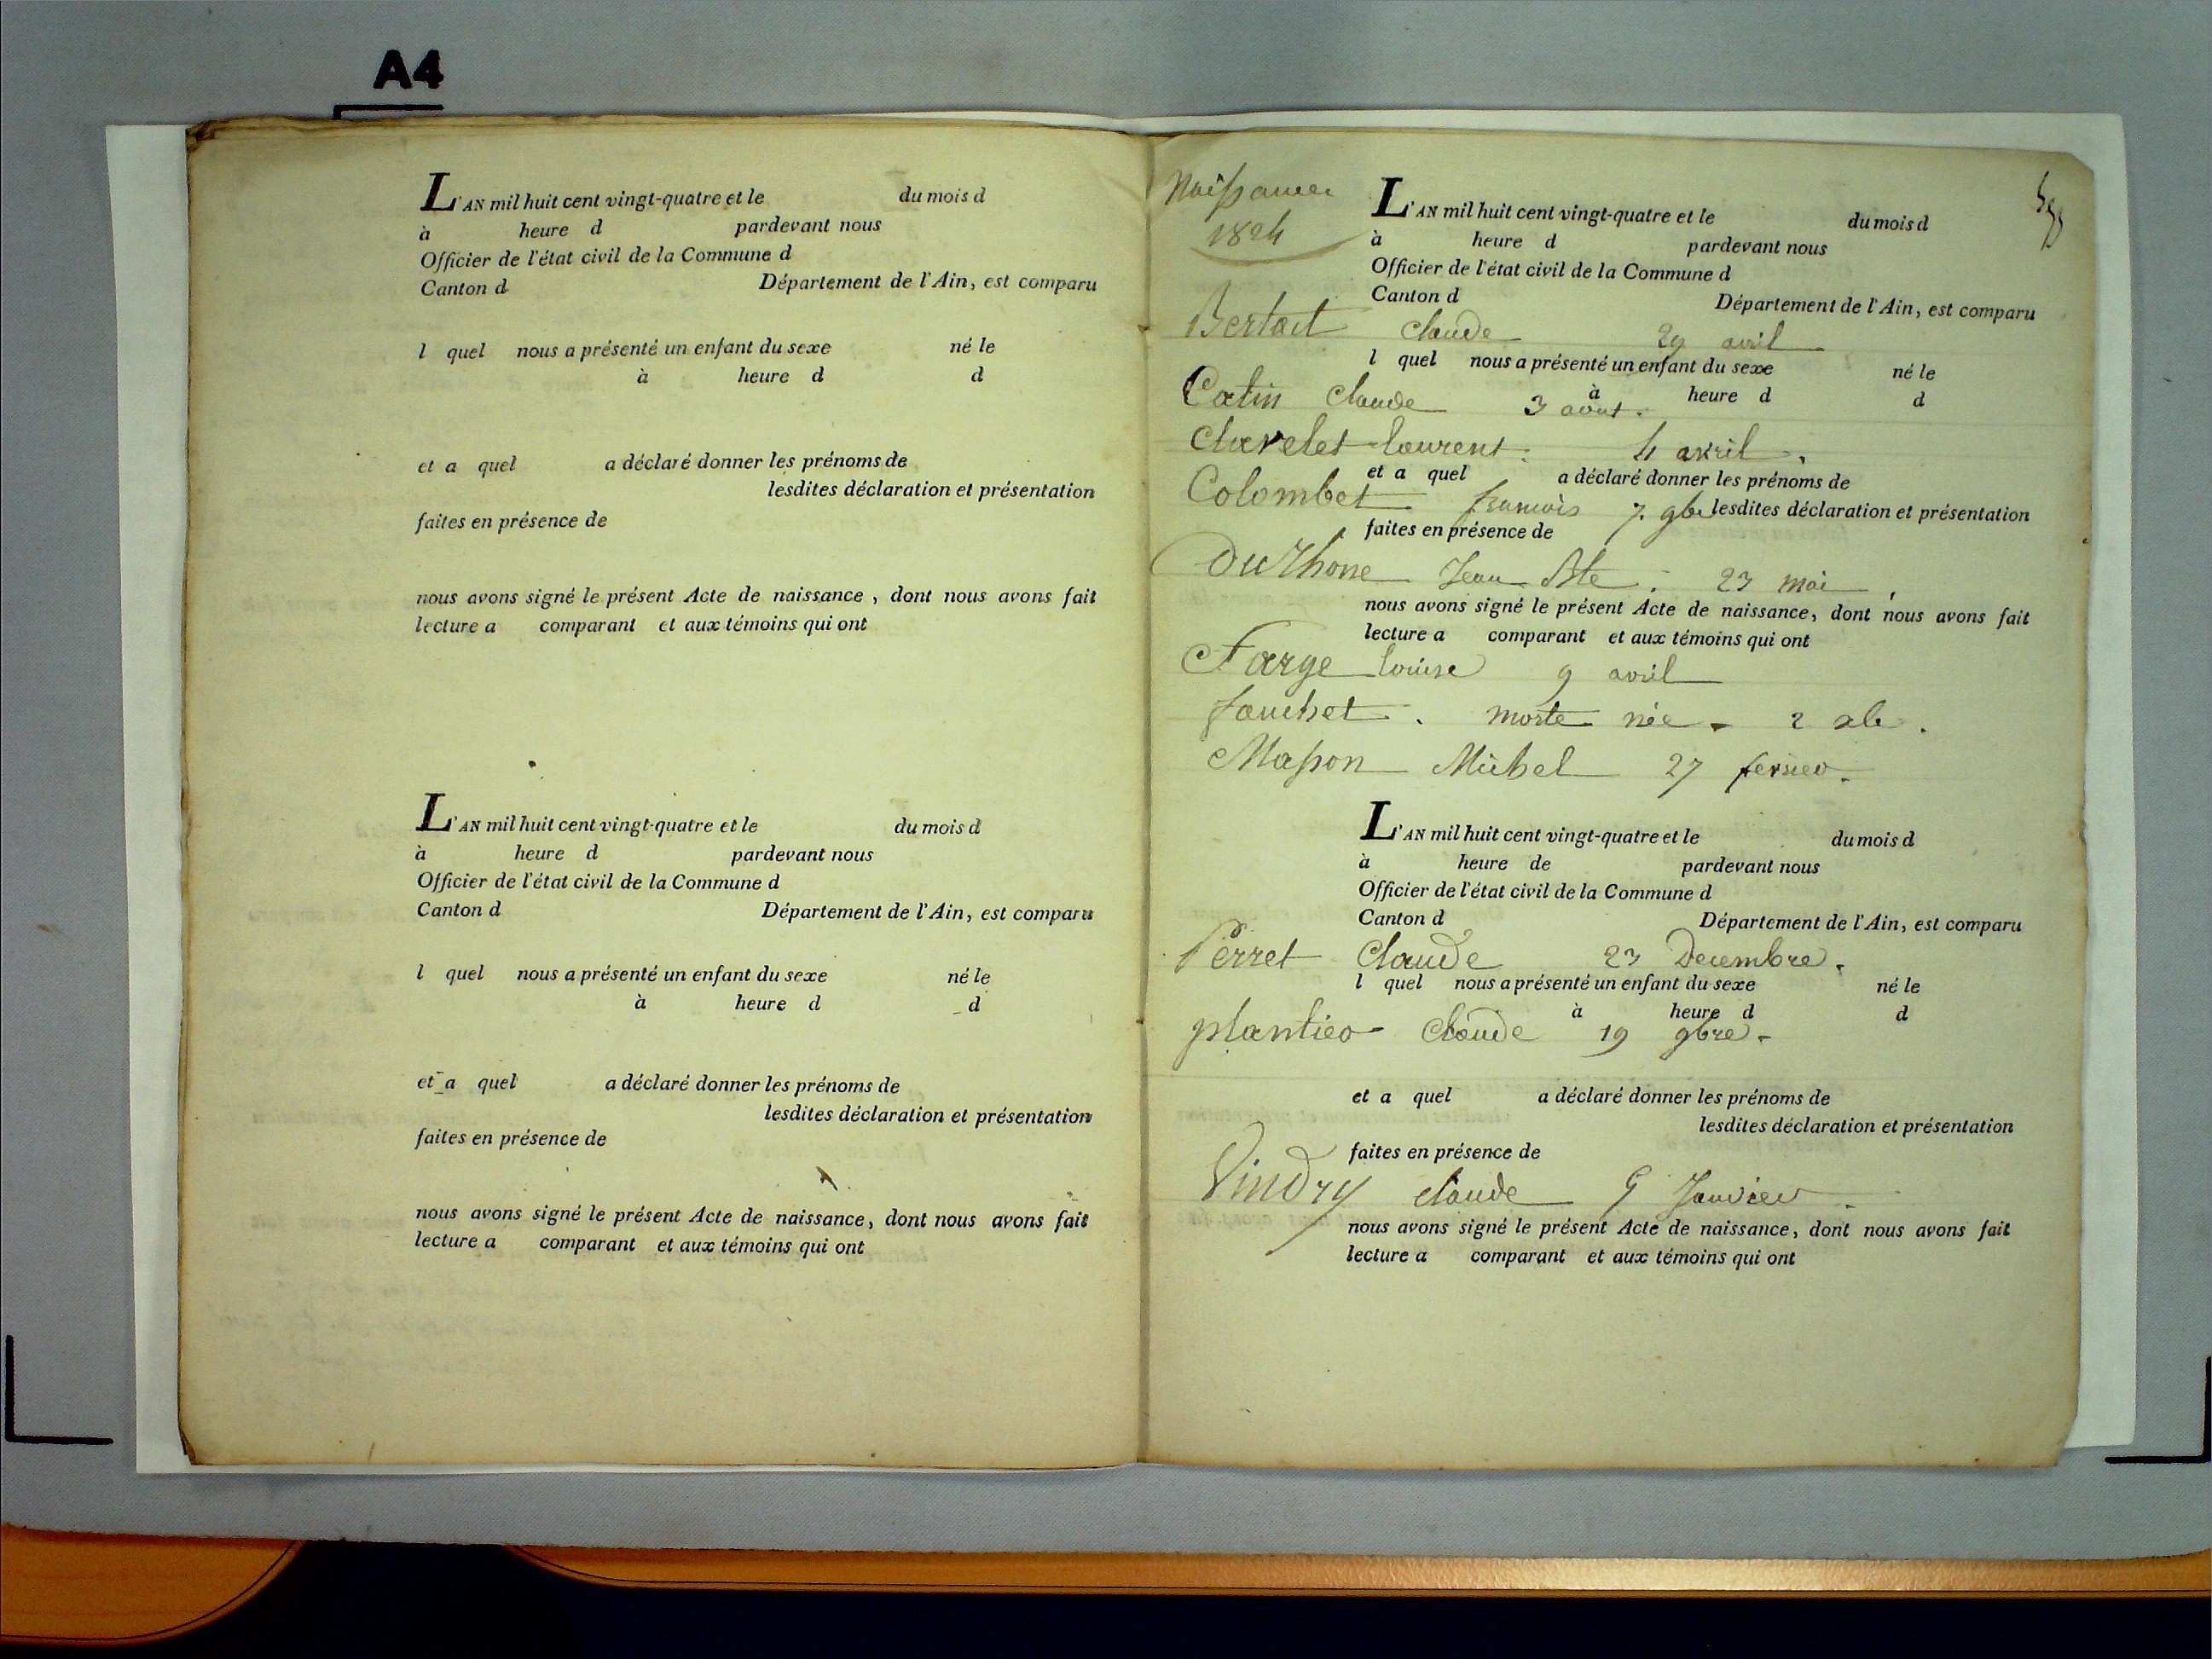 A4
L'AN mil huit cent vingt-quatre et le du mois d
à heure d pardevant nous
Officier de l'état civil de la Commune d
Canton d Département de l'Ain, est comparu
l quel nous a présenté un enfant du sexe né le
à heure d d
et a quel a déclaré donner les prénoms de
lesdites déclaration et présentation
faites en présence de
nous avons signé le présent Acte de naissance, dont nous avons fait
lecture a comparant et aux témoins qui ont
L'AN mil huit cent vingt-quatre et le du mois d
à heure d pardevant nous
Officier de l'état civil de la Commune d
Canton d Département de l'Ain, est comparu
l quel nous a présenté un enfant du sexe né le
à heure d d
et a quel a déclaré donner les prénoms de
lesdites déclaration et présentation
faites en présence de
nous avons signé le présent Acte de naissance, dont nous avons fait
lecture a comparant et aux témoins qui ont
Naissances
1824
L'AN mil huit cent vingt-quatre et le du mois d
à heure d pardevant nous
Officier de l'état civil de la Commune d
Canton d Département de l'Ain, est comparu
claude 29 avril
l quel nous a présenté un enfant du sexe né le
à heure d d
Catin claude 3 aout.
Clavelet laurent. 4 avril.
et a quel a déclaré donner les prénoms de
Colombet francois 7. 9bre
lesdites déclaration et présentation
faites en présence de
Du Rhone Jean Bte. 23 mai
nous avons signé le présent Acte de naissance, dont nous avons fait
lecture a comparant et aux témoins qui ont
Farge louise 9 avril
fouchet. morte née - 2 xbr.
Masson Michel 27 fevrier.
L'AN mil huit cent vingt-quatre et le du mois d
à heure de pardevant nous
Officier de l'état civil de la Commune d
Canton d Département de l'Ain, est comparu
Perret Claude 23 Decembre.
l quel nous a présenté un enfant du sexe né le
à heure d d
plantier Claude 19 9bre -
et a quel a déclaré donner les prénoms de
lesdites déclaration et présentation
faites en présence de
Vindry claude Janvier.
nous avons signé le présent Acte de naissance, dont nous avons fait
lecture a comparant et aux témoins qui ont